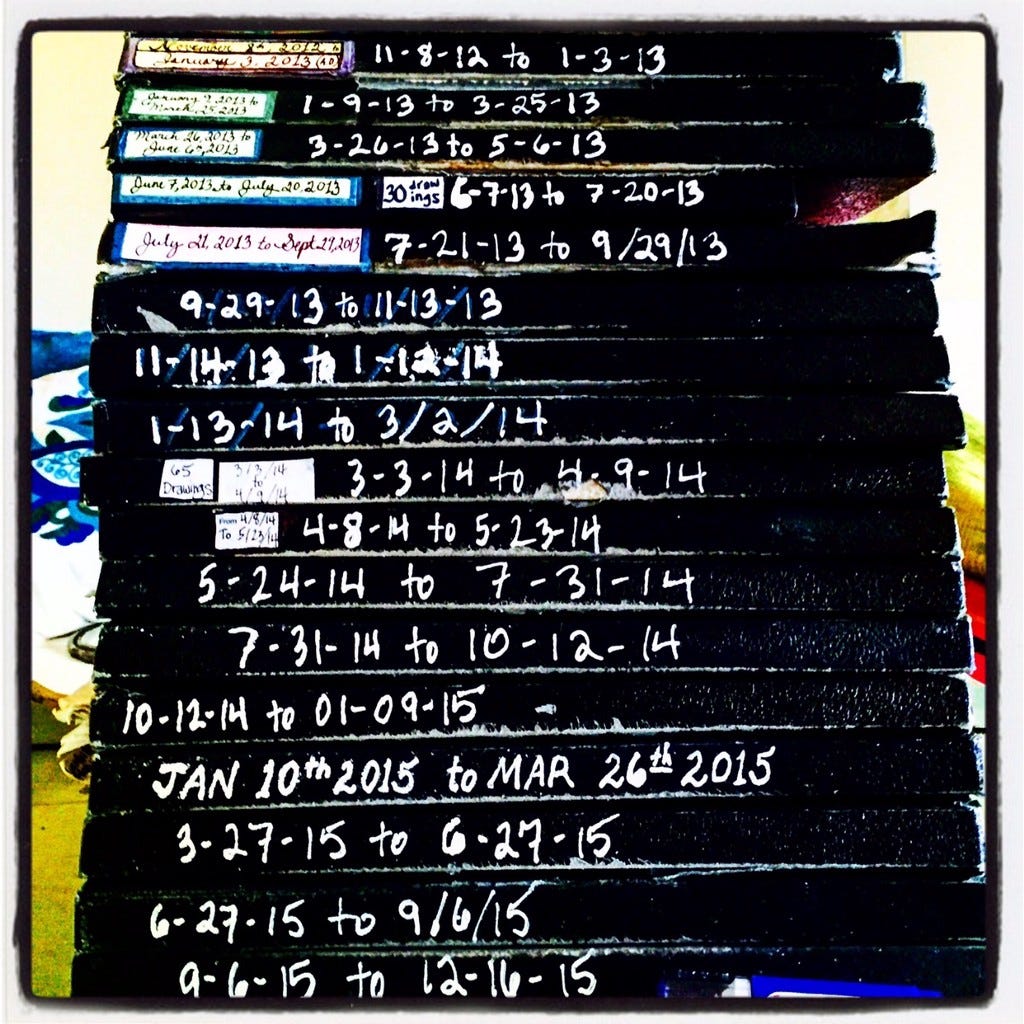 November 8th, 2012 to
January 3, 2013 (40)
11-8-12 to 1-3-13
January 9, 2013 to
March 25, 2013
1-9-13 to 3-25-13
March 26, 2013 to
June 6th, 2013
3-26-13 to 5-6-13
June 7, 2013 to July 20, 2013
30 draw
ings
6-7-13 to 7-20-13
July 21, 2013 to Sept 29, 2013
7-21-13 to 9/29/13
9-29-13 to 11-13-13
11-14-13 to 1-12-14
1-13-14 to 3/2/14
65
Drawings
3/3/14
to
4/9/14
3-3-14 to 4-9-14
From 4/8/14
To 5/23/14
4-8-14 to 5-23-14
5-24-14 to 7-31-14
7-31-14 to 10-12-14
10-12-14 to 01-09-15
JAN 10th 2015 to MAR 26th 2015
3-27-15 to 6-27-15
6-27-15 to 9/6/15
9-6-15 to 12-16-15